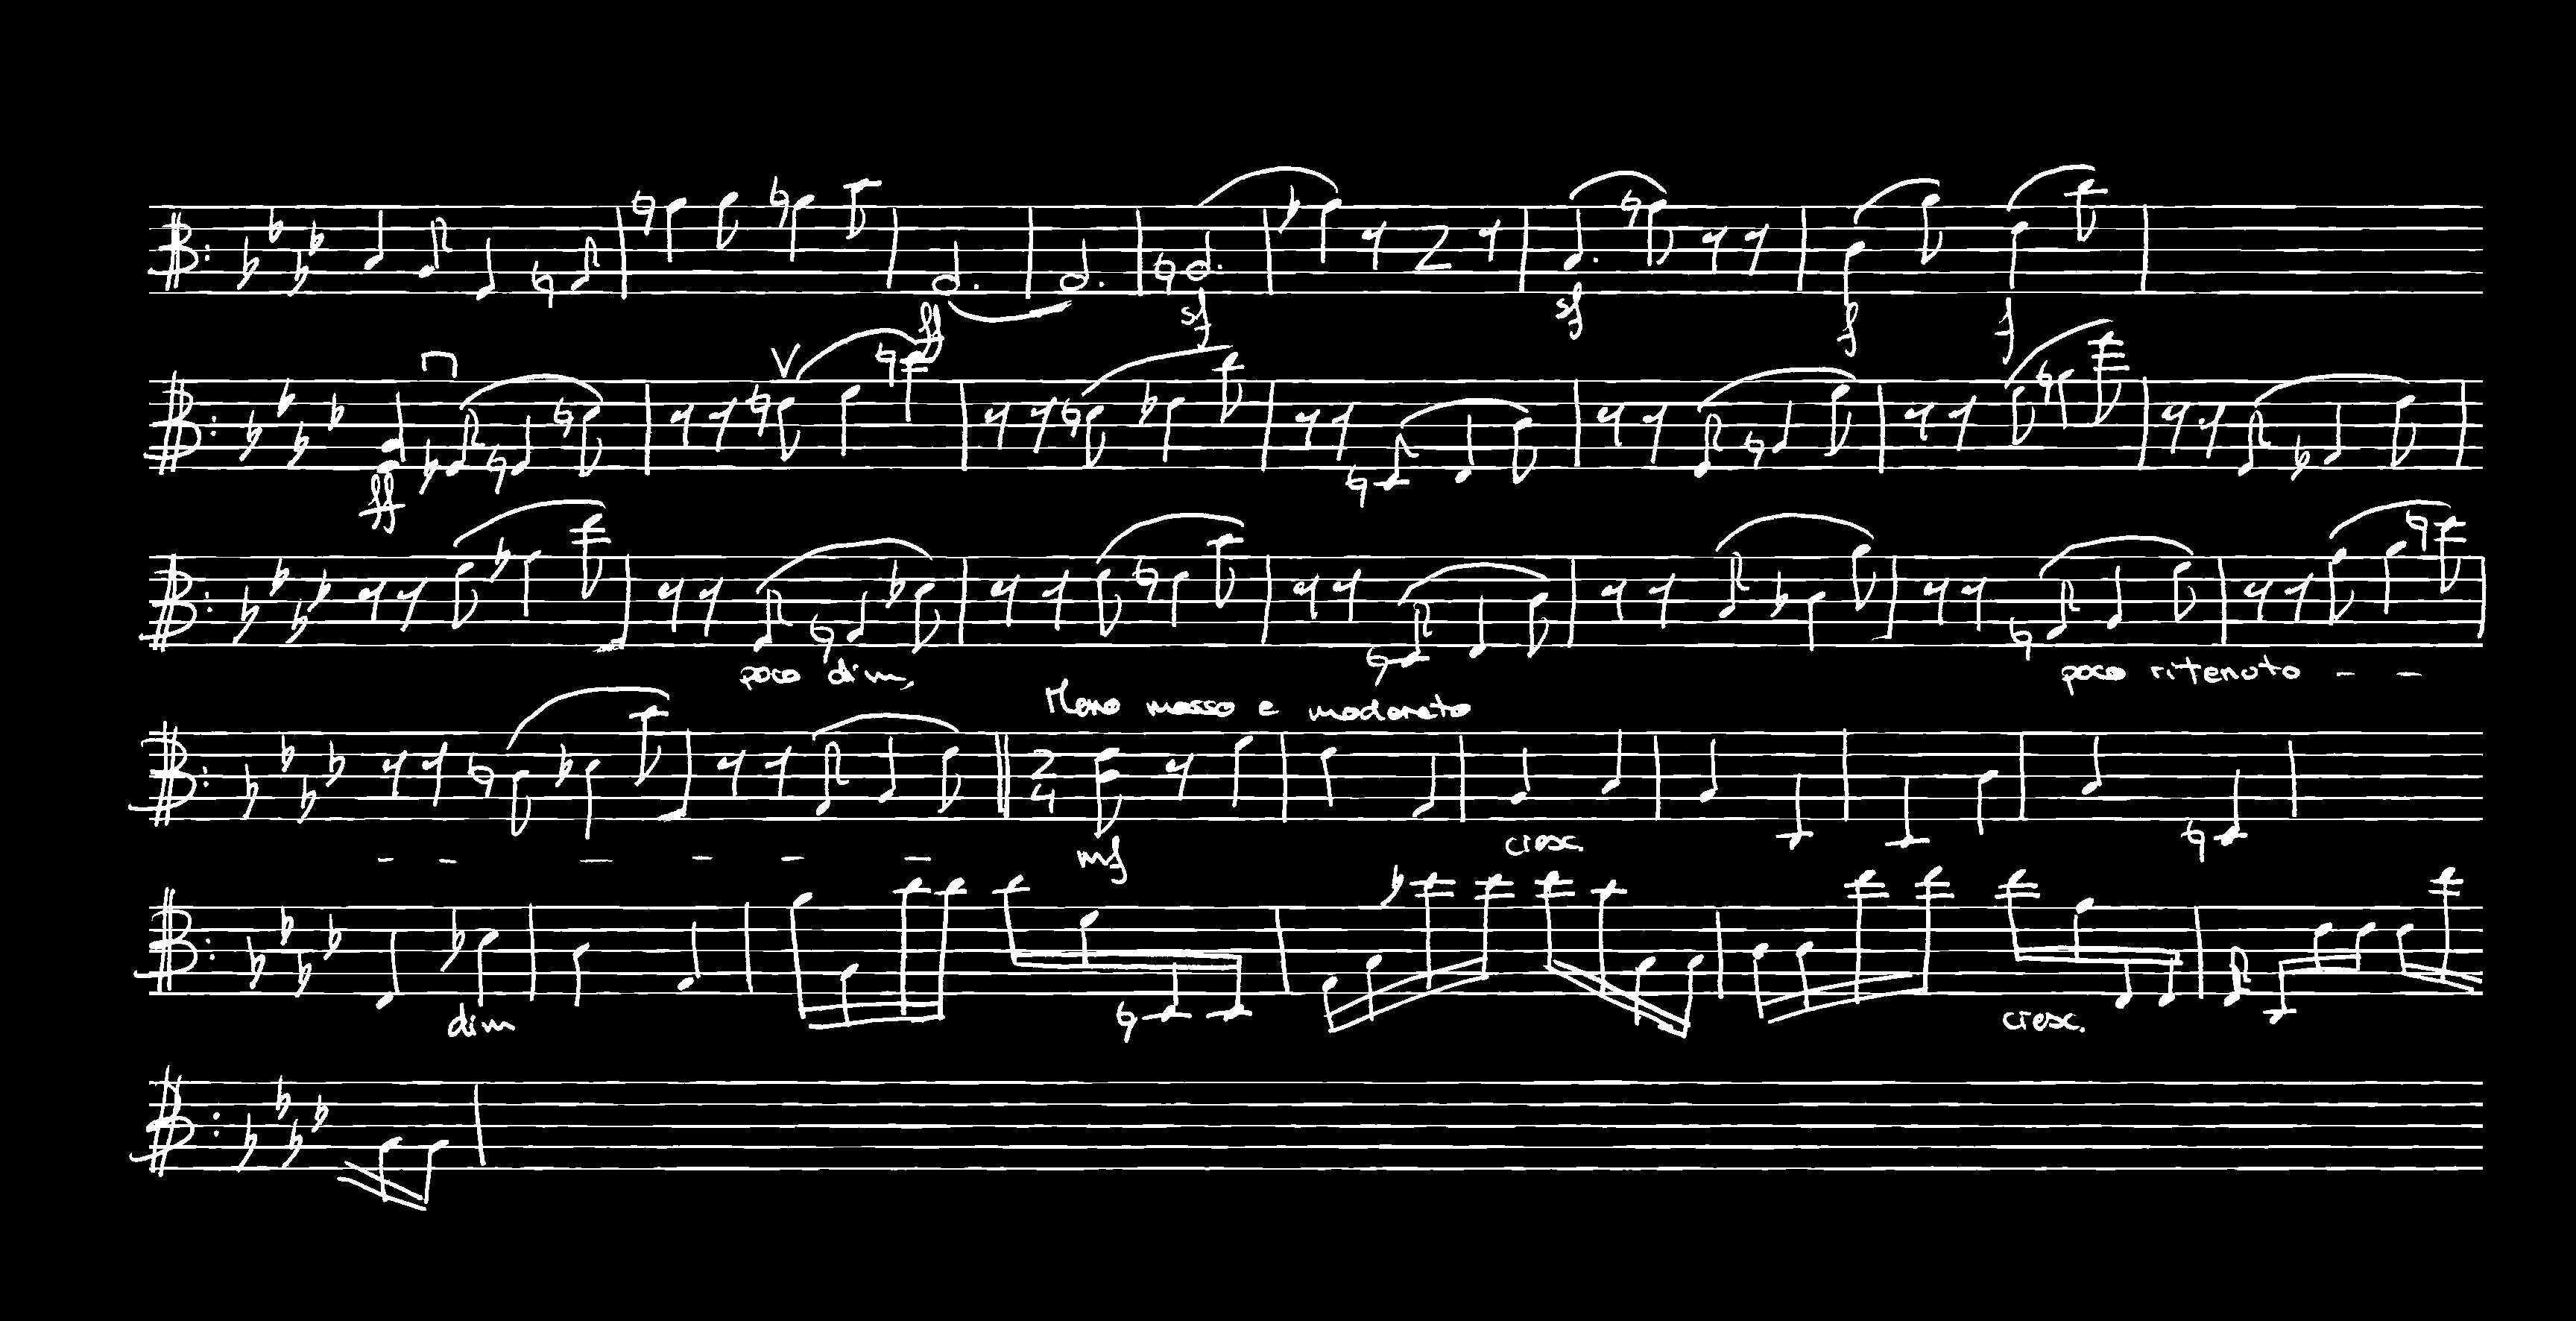 ff sf sf f f
ff
poco dim. poco ritenuto - -
Meno mosso e moderato
2
4
- - - - - - mf cresc.
dim cresc.